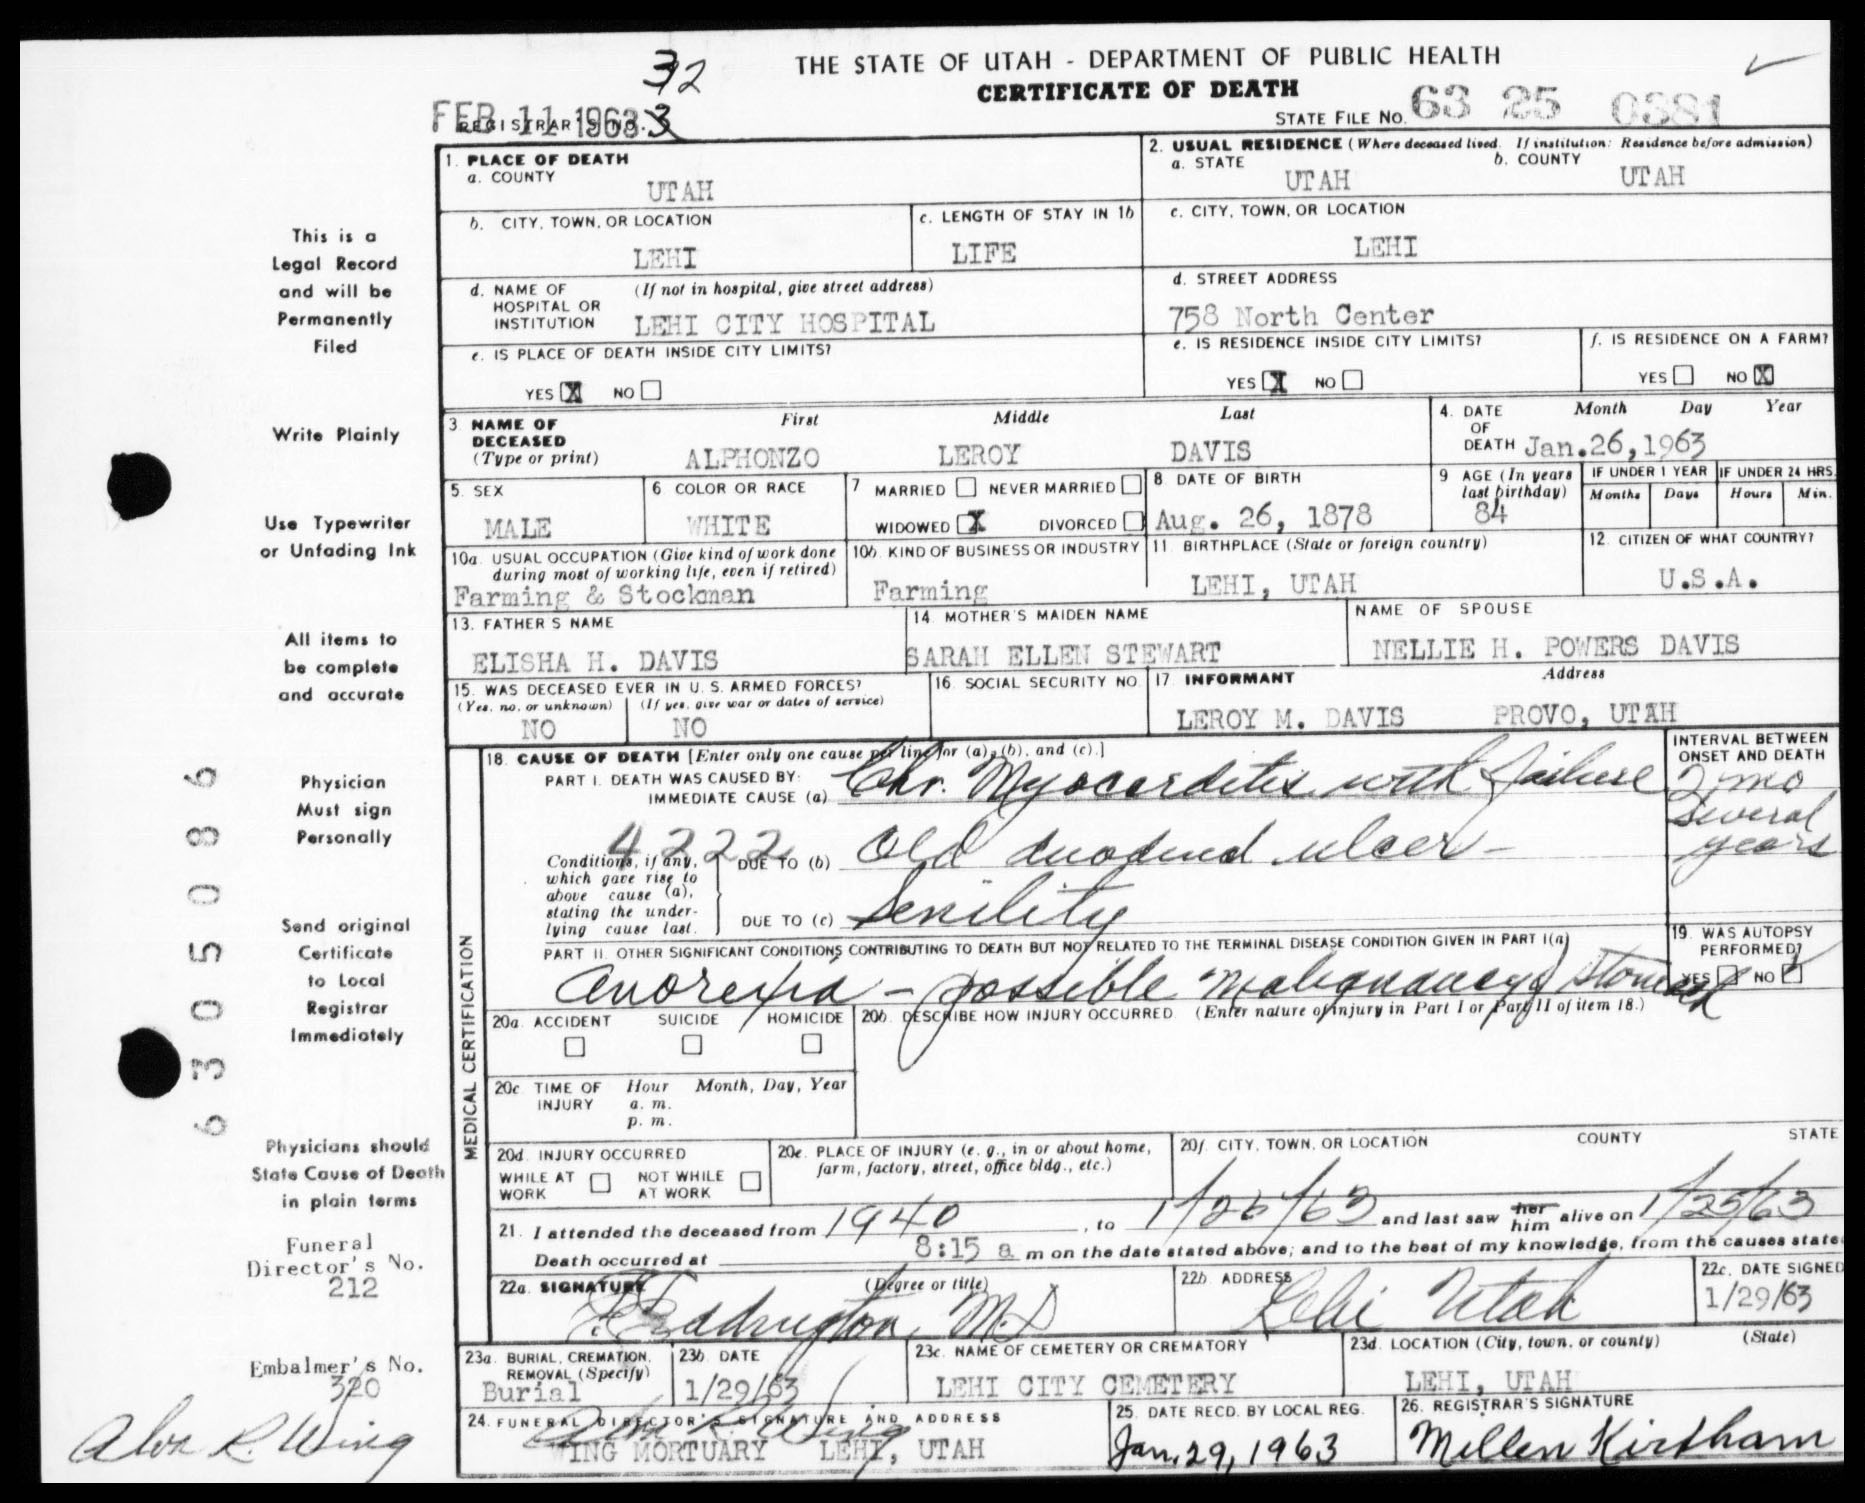 THE STATE OF UTAH - DEPARTMENT OF PUBLIC HEALTH
CERTIFICATE OF DEATH
FEB 11 1963
REGISTRAR'S NO. 3
32
STATE FILE NO. 63 25 0381
This is a
Legal Record
and will be
Permanently
Filed
Write Plainly
Use Typewriter
or Unfading Ink
All items to
be complete
and accurate
Physician
Must sign
Personally
Send original
Certificate
to Local
Registrar
Immediately
Physicians should
State Cause of Death
in plain terms
Funeral
Director's No.
212
Embalmer's No.
320
Alva R. Wing
6305086
1. PLACE OF DEATH
a. COUNTY
UTAH
2. USUAL RESIDENCE (Where deceased lived. If institution: Residence before admission)
a. STATE UTAH b. COUNTY UTAH
b. CITY, TOWN, OR LOCATION
LEHI
c. LENGTH OF STAY IN 1b
LIFE
c. CITY, TOWN, OR LOCATION
LEHI
d. NAME OF HOSPITAL OR INSTITUTION (If not in hospital, give street address)
LEHI CITY HOSPITAL
d. STREET ADDRESS
758 North Center
e. IS PLACE OF DEATH INSIDE CITY LIMITS?
YES X NO
e. IS RESIDENCE INSIDE CITY LIMITS?
YES X NO
f. IS RESIDENCE ON A FARM?
YES NO X
3. NAME OF DECEASED (Type or print)
First Middle Last
ALPHONZO LEROY DAVIS
4. DATE OF DEATH Month Day Year
Jan.26,1963
5. SEX
MALE
6 COLOR OR RACE
WHITE
7 MARRIED NEVER MARRIED
WIDOWED X DIVORCED
8 DATE OF BIRTH
Aug. 26, 1878
9 AGE (In years last birthday)
84
IF UNDER 1 YEAR
Months Days
IF UNDER 24 HRS.
Hours Min.
10a. USUAL OCCUPATION (Give kind of work done during most of working life, even if retired)
Farming & Stockman
10b. KIND OF BUSINESS OR INDUSTRY
Farming
11. BIRTHPLACE (State or foreign country)
LEHI, UTAH
12. CITIZEN OF WHAT COUNTRY?
U.S.A.
13. FATHER'S NAME
ELISHA H. DAVIS
14. MOTHER'S MAIDEN NAME
SARAH ELLEN STEWART
NAME OF SPOUSE
NELLIE H. POWERS DAVIS
15. WAS DECEASED EVER IN U. S. ARMED FORCES?
(Yes, no, or unknown) (If yes, give war or dates of service)
NO NO
16. SOCIAL SECURITY NO.
17. INFORMANT Address
LEROY M. DAVIS PROVO, UTAH
MEDICAL CERTIFICATION
18. CAUSE OF DEATH [Enter only one cause per line for (a), (b), and (c).]
PART I. DEATH WAS CAUSED BY:
IMMEDIATE CAUSE (a) Chr. Myocarditis with failure
INTERVAL BETWEEN ONSET AND DEATH
2 mo
several
years
4222
Conditions, if any, which gave rise to above cause (a), stating the underlying cause last.
DUE TO (b) Old duodenal ulcer -
DUE TO (c) Senility
PART II. OTHER SIGNIFICANT CONDITIONS CONTRIBUTING TO DEATH BUT NOT RELATED TO THE TERMINAL DISEASE CONDITION GIVEN IN PART I(a)
Anorexia - possible Malignancy stomach
19. WAS AUTOPSY PERFORMED?
YES NO
20a. ACCIDENT SUICIDE HOMICIDE
20b. DESCRIBE HOW INJURY OCCURRED. (Enter nature of injury in Part I or Part II of item 18.)
20c. TIME OF INJURY Hour Month, Day, Year
a. m.
p. m.
20d. INJURY OCCURRED
WHILE AT WORK NOT WHILE AT WORK
20e. PLACE OF INJURY (e. g., in or about home, farm, factory, street, office bldg., etc.)
20f. CITY, TOWN, OR LOCATION COUNTY STATE
21. I attended the deceased from 1940, to 1/26/63 and last saw her him alive on 1/25/63
Death occurred at 8:15 a m on the date stated above; and to the best of my knowledge, from the causes state
22a. SIGNATURE (Degree or title)
Eddington, M.D
22b. ADDRESS
Lehi Utah
22c. DATE SIGNED
1/29/63
23a. BURIAL, CREMATION, REMOVAL (Specify)
Burial
23b. DATE
1/29/63
23c. NAME OF CEMETERY OR CREMATORY
LEHI CITY CEMETERY
23d. LOCATION (City, town, or county) (State)
LEHI, UTAH
24. FUNERAL DIRECTOR'S SIGNATURE AND ADDRESS
Alva R. Wing
WING MORTUARY LEHI, UTAH
25. DATE RECD. BY LOCAL REG.
Jan. 29, 1963
26. REGISTRAR'S SIGNATURE
Millen Kirkham